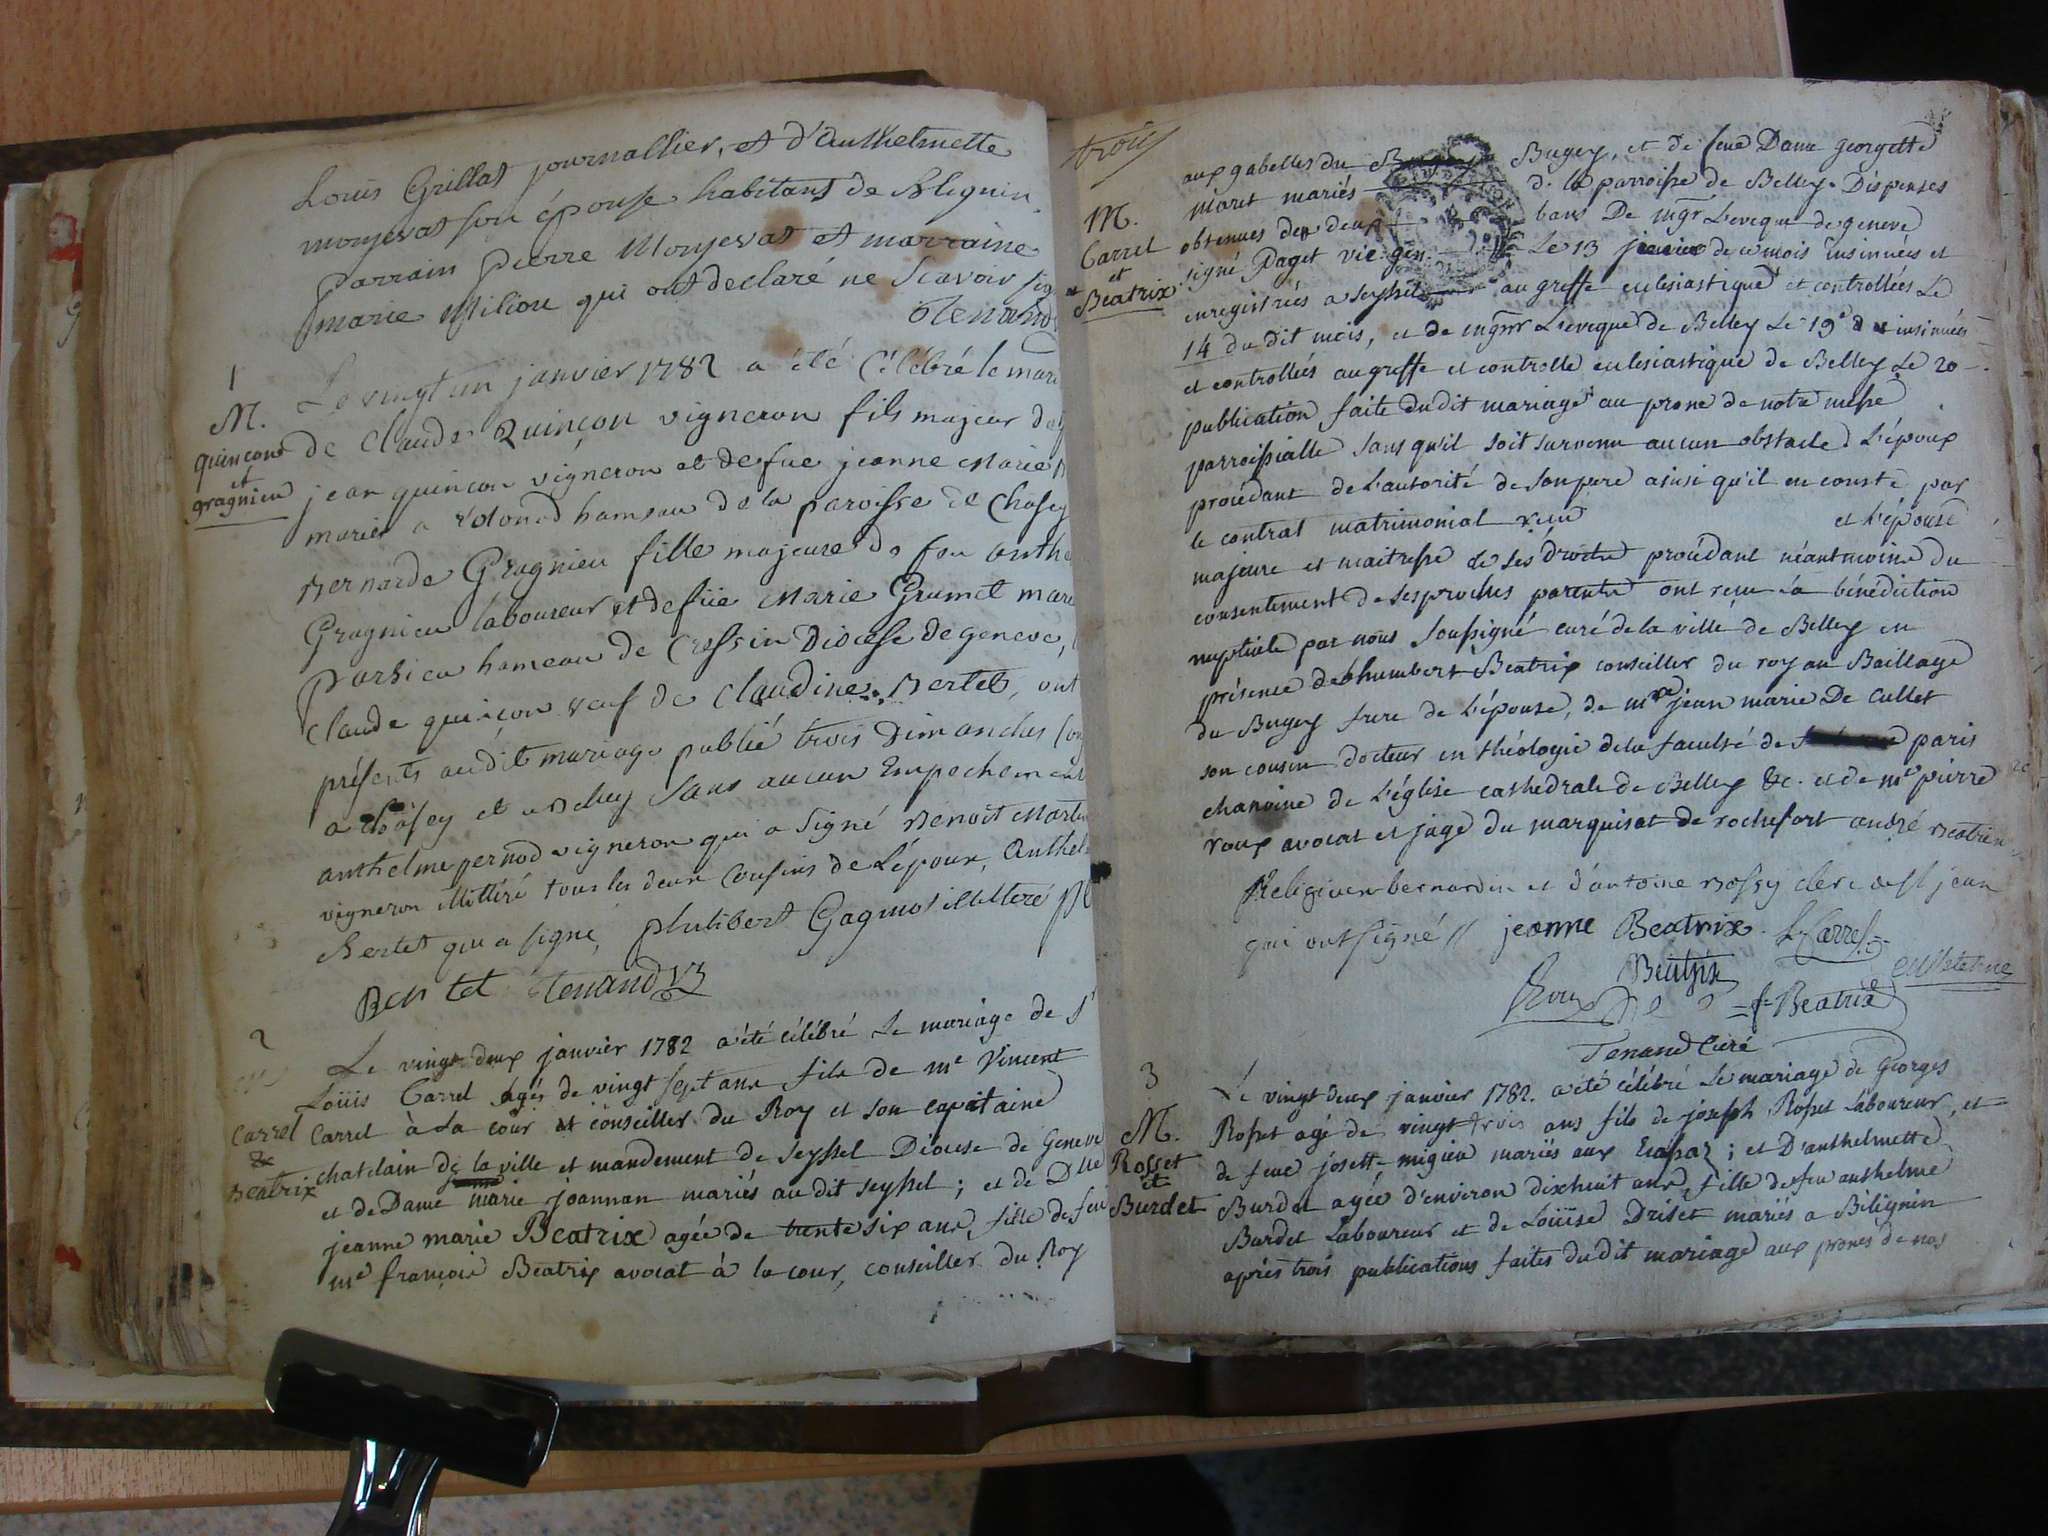 Louis Grillat journallier, et d'Anthelmette
monjevat son épouse habitans de
parrain pierre Monjevat et marraine
marie Milion qui ont declaré ne scavoir
Tenand
1
M.
quinçon
et
gragnieu
Le vingt un janvier 1782 a été Célébré le
de Claude Quinçon vigneron fils majeur
jean quinçon vigneron et de fue jeanne Marie
mariés a hameau de la paroisse de
Bernarde Gragnieu fille majeure de feu
Gragnieu laboureur et de füe Marie Grumet
parsieu hameau de Cressin Diocese de geneve,
Claude quinçon veuf de Claudine Bertet, ont
présents audit mariage publié trois Dimanches
a et a Belley sans aucun Empechement
anthelme pernod vigneron qui a signé Benoit
vigneron illittéré tous les deux Cousins de L'époux,
Bertet qui a signé, philibert illittéré
Bertet Tenand
2
Carrel
&
Beatrix
Le vingt deux janvier 1782 a été célébré Le mariage de Sr
Loüis Carrel agés de vingt sept ans fils de me Vincent
Carrel à La cour et conseiller du Roy et son capitaine
chatelain de la ville et mandement de Seyssel Diocese de Geneve
et de Dame marie joannan mariés au dit seyssel; et de Dlle
jeanne marie Beatrix agée de trente six ans, fille de feu
me françois Beatrix avocat à la cour, conseiller du Roy
trois
M.
Carrel
et
Beatrix
aux gabelles du Bugey, et de feue Dame georgette
maret mariés de la parroisse de Belley. Dispenses
obtenues de deux bans De mgr L'eveque de geneve
signé Paget vic: gen: Le 13 de ce mois insinuées et
enregistrées a seyssel au greffe eclesiastique et controllées Le
14 du dit mois, et de mgnr L'eveque de Belley Le 19e insinuées
et controllées au greffe et controlle eclesiastique de Belley Le 20
publication faite du dit mariage au prone de notre messe
parroissialle sans qu'il soit survenu aucun obstacle L'époux
procédant de L'autorité de son pere ainsi qu'il en conste par
le contrat matrimonial et L'épouse
majeure et maitresse de ses droits procédant néantmoins du
consentement de ses proches parents ont reçu la bénédiction
nuptiale par nous soussigné curé de la ville de Belley en
présence de humbert Beatrix conseiller du roy au Baillage
du Bugey frere de L'épouse, de mre jean marie De Cullet
son cousin docteur en théologie de la faculté de paris
chanoine de L'église cathedrale de Belley &c. et de me pierre
roux avocat et juge du marquisat de rochefort andré
Religieux bernardin et d'antoine clerc jean
qui ont signé // jeanne Beatrix. L. Carrel
Beatrix
Roux f. Beatrix
Tenand Curé
3
M.
Rosset
et
Burdet
Le vingt deux janvier 1782. a été célébré Le mariage de Georges
Rosset agé de vingt trois ans fils de joseph Rosset Laboureur, et
de feue josette migieu mariés aux Ecassaz; et D'anthelmette
Burdet agée d'environ dixhuit ans, fille de feu anthelme
Burdet Laboureur et de Loüise Driset mariés a Bilignin
après trois publications faites du dit mariage aux prones de nos